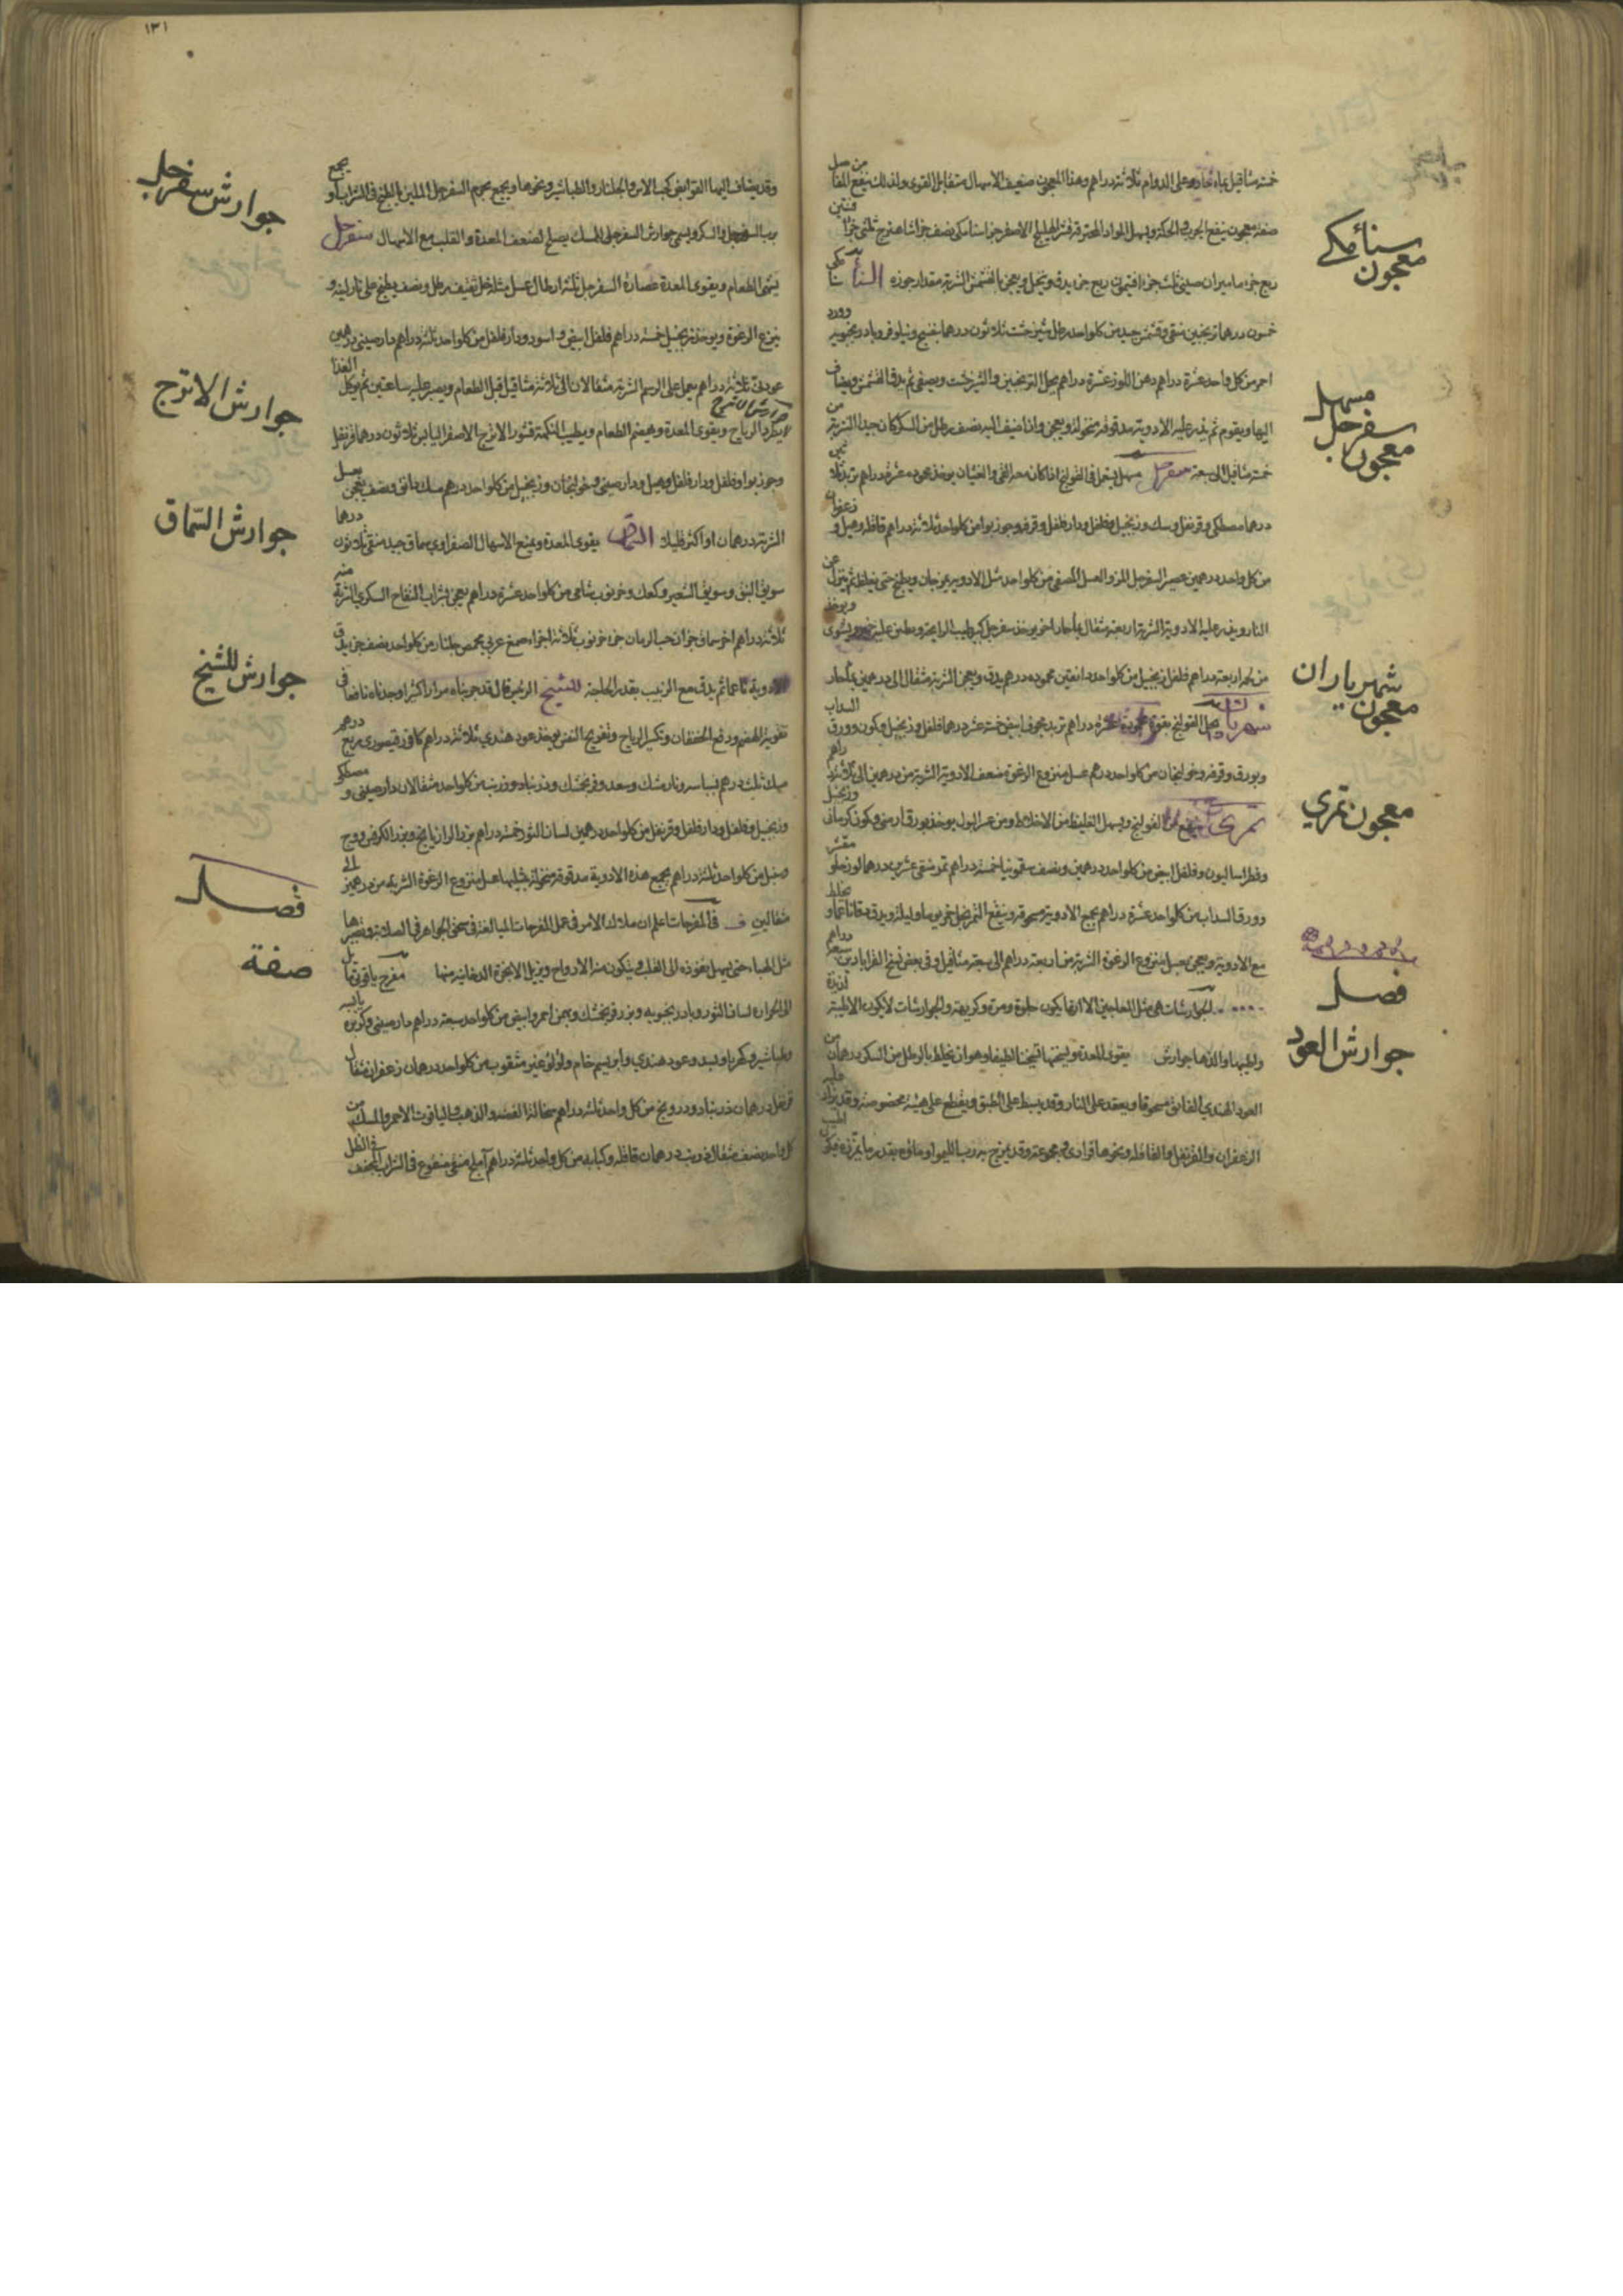 خمسة مثاقيل بماء حار وعلى الدوام ثلاثة دراهم وهذا المعجون ضعيف الاسهال متقابل القوى ولذلك ينفع المفاصل
معجون سنأمكي
صفة معجون ينفع الجرب والحكة ويسهل المواد المحترقة قشر الهليلج الاصفر جزء سنامكي نصف جزء شاهترج ثلثي جزء
ربع جزء ماميران صيني ثلث جزء افتيمون ربع جزء يدق وينخل ويعجن الشربة مقدار جوزه السنا مكي
خمسون درهما ترنجبين منقى من كل واحد رطل شيرخشت ثلاثون درهما بنفسج ونيلوفر وبادرنجبويه وورد
احمر من كل واحد عشرة دراهم دهن اللوز عشرة دراهم يحل الترنجبين والشيرخشت ويصفى ثم يدق ويضاف
معجون سفرجل مسهل
اليها ويقوم ثم يذر عليه الادوية مدقوقة منخولة ويعجن واذا اضيف اليه نصف رطل من السكر كان جيدا الشربة من
خمسة مثاقيل الى سبعة سفرجل مسهل يستعمل في القولنج اذا كان معه القي والغثيان يوخذ محموده عشرة دراهم تربد ثلاثين
درهما مصطكي وقرنفل وسك وزنجبيل وفلفل ودار فلفل وقرفه وجوزبوا من كل واحد ثلاثة دراهم قاقله وهيل وزعفران
من كل واحد درهمين عصير السفرجل المز والعسل المصفى من كل واحد مثل الادوية يمزجان ويطبخ حتى يغلظ ثم ينزل عن
النار ويذر عليه الادوية الشربة اربعة مثقال بماء حار اخر يوخذ سفرجل كبير طيب الرايحة ويطين عليه ويشوى ويوخذ
من لحمه اربعة دراهم فلفل زنجبيل من كل واحد دانقين محموده درهم يدق ويعجن الشربة مثقال الى درهمين بماء حار
معجون شهرياران
شهرياران يحل القولنج بقوة محموده عشرة دراهم تربد مجوف ابيض خمسة عشر درهما فلفل وزنجبيل وكمون وورق السداب
وبورق وقرفه وخولنجان من كل واحد درهم عسل منزوع الرغوة ضعف الادوية الشربة من درهمين الى ثلاثة دراهم
معجون تمري
تمري ينفع من القولنج ويسهل الغليظ من الاخلاط ومن عسر البول يوخذ بورق ارمني وكمون كرماني وزنجبيل
وفطراساليون وفلفل ابيض من كل واحد درهمين ونصف سقمونيا خمسة دراهم تمر منقى عشرين درهما لوز حلو مقشر
وورق السداب من كل واحد عشرة دراهم يجمع الادوية مسحوقة وينقع التمر بخل خمر يوما وليلة ويدق دقا ناعما ويخلط
مع الادوية ويعجن بعسل منزوع الرغوة الشربة من اربعة دراهم الى سبعة مثاقيل وفي بعض نسخ القراباذين سبعة دراهم
فصل
الجوارشات هي مثل المعاجين الا انها يكون حلوة ومرة وكريهة والجوارشات لا يكون الا طيبة لذيذة
جوارش العود
واطيبها والذها جوارش يقوى المعدة ويسخنها تسخينا لطيفا وهو ان يخلط بالرطل من السكر درهمان من
العود الهندي الفايق مسحوقا ويعقد على النار وقد يبسط على الطبق ويقطع على هيئة مخصوصة وقد يزاد عليه
الزعفران والقرنفل والقاقله ونحوها فرادى ومجموعة وقد يمزج به رب الليمو او ماؤه بقدر
١٣١
وقد يضاف اليها القوابض كحب الاس والجلنار والطباشير ونحوها ويجمع بجرم السفرجل الملين بالطبخ في الشراب او يجمع
جوارش سفرجل
برب السفرجل والسكر ويسمى جوارش السفرجلي الممسك يصلح لضعف المعدة والقلب مع الاسهال سفرجل
يشهى الطعام ويقوى المعدة عصارة السفرجل ثلثة ارطال عسل مثله خل ثقيف رطل ونصف يطبخ على نار لينة و
ينزع الرغوة ويوخذ زنجبيل خمسة دراهم فلفل ابيض واسود ودار فلفل من كل واحد ثلثة دراهم دارصيني درهمين
عود ثلاثة دراهم يعمل على الرسم الشربة مثقالان الى ثلاثة مثاقيل قبل الطعام ويصبر عليه ساعتين ثم يوكل الغذا
جوارش الاترج
جوارش اترج يكسر الرياح ويقوى المعدة ويهضم الطعام ويطيب النكهة قشور الاترج الاصفر اليابس ثلاثون درهما قرنفل
وجوزبوا وفلفل ودار فلفل وهيل ودارصيني وخولنجان وزنجبيل من كل واحد درهم مسك دانق ونصف يعجن بعسل
جوارش السماق
الشربة درهمان او اكثر قليلا السماق يقوى المعدة ويمنع الاسهال الصفراوي سماق جيد منقى ثلاثون درهما
سويق النبق وسويق الشعير وكعك وخرنوب شامي من كل واحد عشرة دراهم يعجن بشراب التفاح السكري الشربة منه
ثلاثة دراهم اخر سماق جزان حب الرمان جزء خرنوب ثلاثة اجزاء صمغ عربي محمص جلنار من كل واحد نصف جزء يدق
جوارش للشيخ
الادوية ناعما ثم يدق مع الزبيب بقدر الحاجة للشيخ الرئيس قال قد جربناه مرارا كثيرا وجدناه نافعا في
تقوية الهضم ودفع الخفقان وتكسير الرياح وتفريح النفس يوخذ عود هندي ثلاثة دراهم كافور قيصوري ربع درهم
مسك ثلث درهم بسباسه ونارمشك وسعد وفرنجمشك وزرنباد وزرنب من كل واحد مثقالان دارصيني ومصطكي
وزنجبيل وفلفل ودار فلفل وقرنفل من كل واحد درهمين لسان الثور خمسة دراهم بزر الرازيانج وبزر الكرفس ووج
وسنبل من كل واحد ثلثة دراهم يجمع هذه الادوية مدقوقة منخولة بمثليها عسل منزوع الرغوة الشربة من درهمين الى
فصل
مثقالين ف في المفرحات اعلم ان ملاك الامر في عمل المفرحات المبالغة في سحق الجواهر في الصلاية وتصيرها
صفة
مثل الهباء حتى يسهل نفوذه الى القلب ويتكون منه الارواح ويزيل الابخرة الدخانيه منها مفرح ياقوتي
لسان الثور وبادرنجبويه وبزر فرنجمشك وبهمن احمر وابيض من كل واحد سبعة دراهم دارصيني
وطباشير وكهربا وبسد وعود هندي وابريسم خام ولؤلؤ غير مثقوب من كل واحد درهمان زعفران مثقال
قرنفل درهمان زرنباد ودرونج من كل واحد ثلثة دراهم سحالة الفضة والذهب والياقوت الاحمر والمسك من
كل واحد نصف مثقال درهمان قاقله وكبابه من كل واحد ثلثة دراهم آملج منقى منقوع في الشراب المجفف في الظل